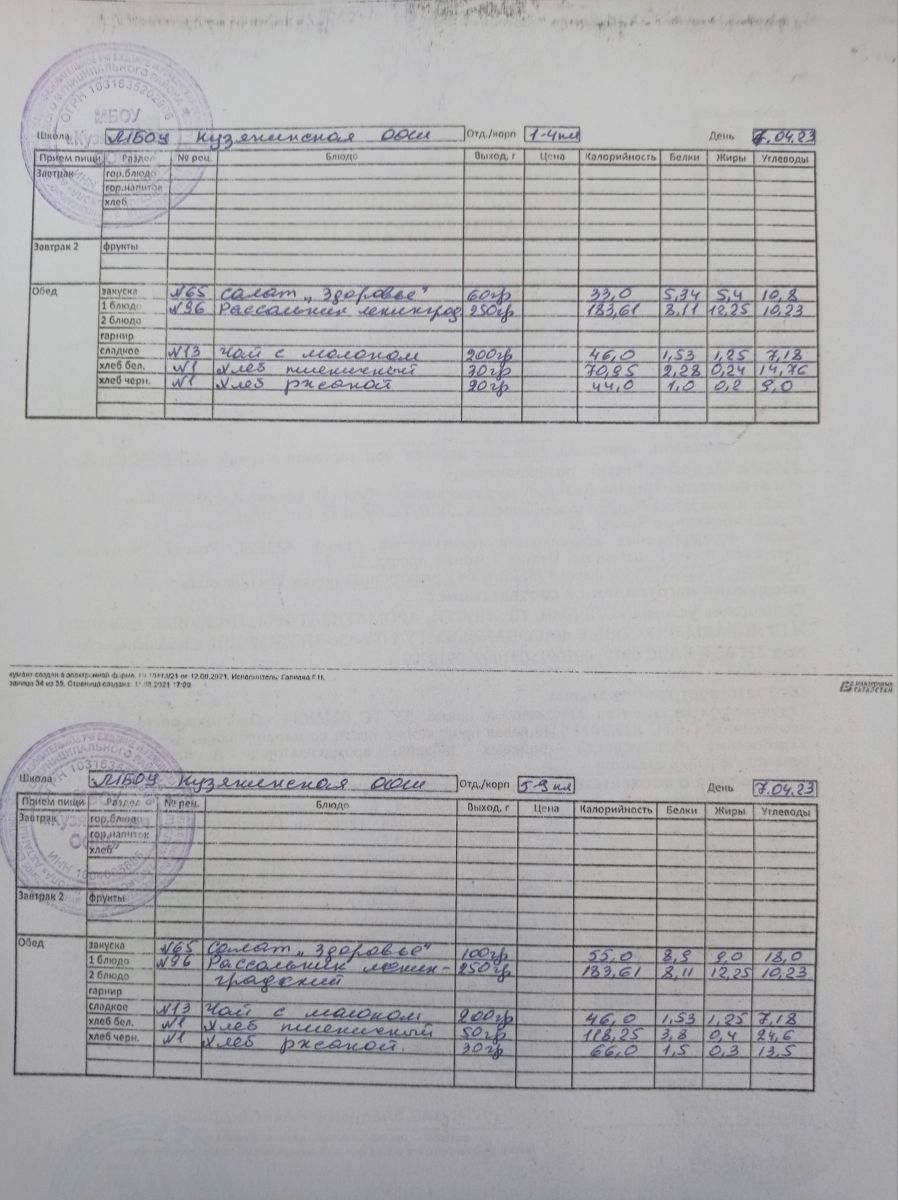 ОГРН 1031635202976
МБОУ
Школа МБОУ Кузякинская ООШ Отд./корп 1-4 кл День 7.04.23
Прием пищи Раздел № рец. Блюдо Выход, г Цена Калорийность Белки Жиры Углеводы
Завтрак гор.блюдо
гор.напиток
хлеб
Завтрак 2 фрукты
Обед закуска №65 Салат „Здоровье" 60гр 33,0 5,34 5,4 10,8
1 блюдо №96 Рассольник ленинград 250гр 183,61 8,11 12,25 10,23
2 блюдо
гарнир
сладкое №13 Чай с молоком 200гр 46,0 1,53 1,25 7,18
хлеб бел. №1 Хлеб пшеничный 30гр 70,95 2,28 0,24 14,76
хлеб черн. №1 Хлеб ржаной 20гр 44,0 1,0 0,2 9,0
кумент создан в электронной форме. от 12.08.2021. Исполнитель: Галиева Г.Н.
аница 34 из 35. Страница создана: 11.08.2021 17:00
ЭЛЕКТРОННЫЙ
ТАТАРСТАН
Школа МБОУ Кузякинская ООШ Отд./корп 5-9 кл День 7.04.23
Прием пищи Раздел № рец. Блюдо Выход, г Цена Калорийность Белки Жиры Углеводы
Завтрак гор.блюдо
гор.напиток
хлеб
Завтрак 2 фрукты
Обед закуска №65 Салат „Здоровье" 100гр 55,0 8,9 9,0 18,0
1 блюдо №96 Рассольник ленин- 250гр 183,61 8,11 12,25 10,23
2 блюдо градский
гарнир
сладкое №13 Чай с молоком 200гр 46,0 1,53 1,25 7,18
хлеб бел. №1 Хлеб пшеничный 50гр 118,25 3,8 0,4 24,6
хлеб черн. №1 Хлеб ржаной. 30гр 66,0 1,5 0,3 13,5